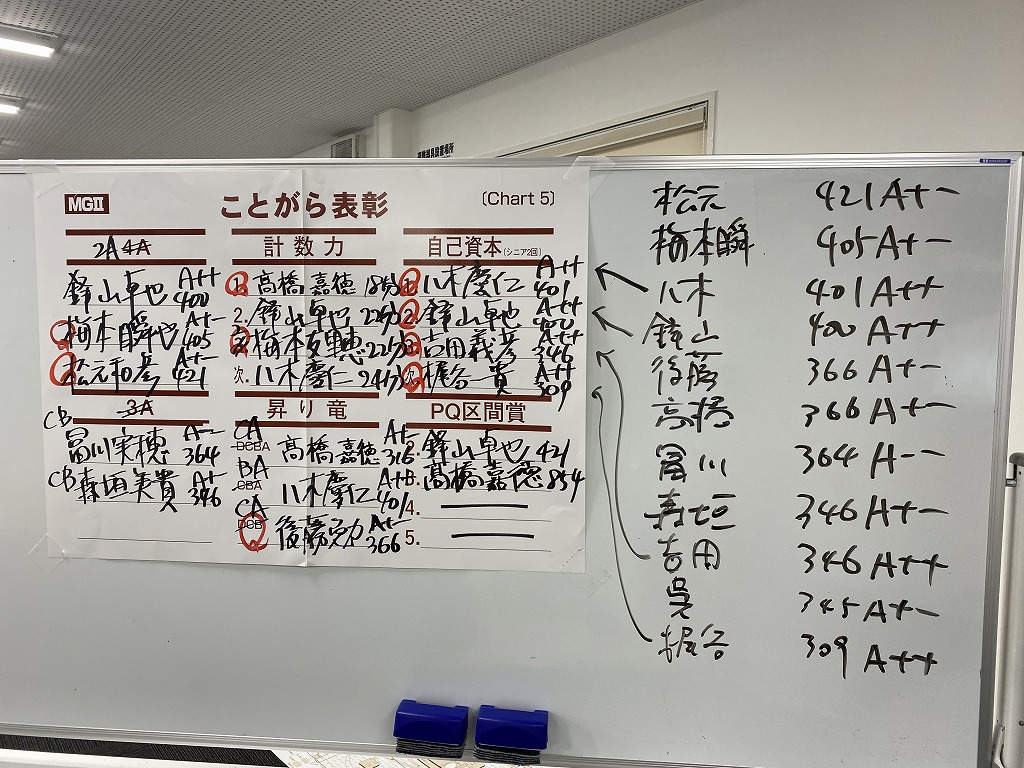 MGII
ことがら表彰
〔Chart 5〕
2A 4A
鐘山卓也 A++ 400
梅本瞬也 A+- 405
松元和彦 A+- 421
3A
CB 冨川実穂 A-- 364
CB 森垣美貴 A+- 346
計数力
1. 高橋 嘉徳 18分
2. 鐘山卓也 22分
梅本友聴 22分
次. 八木慶仁 24分
昇り竜
CA DCBA 高橋 嘉徳 A+- 316
BA CBA 八木慶仁 A++ 401
CA DCB 後藤 A+- 366
自己資本(シニア2回)
1. 八木慶仁 A++ 401
2. 鐘山卓也 A++ 400
吉田義彦 A++ 346
次. 梶谷一貴 A++ 309
PQ区間賞
2. 鐘山卓也 421
3. 高橋嘉徳 854
4.
5.
松元 421 A+-
梅本瞬 405 A+-
八木 401 A++
鐘山 400 A++
後藤 366 A+-
高橋 366 A+-
冨川 364 A--
森垣 346 A+-
吉田 346 A++
呉 345 A+-
梶谷 309 A++